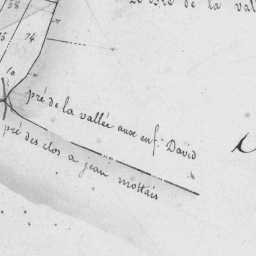 de la val
58
75
74
10
pré de la vallée aux enf. David
pré des clos a jean mottais